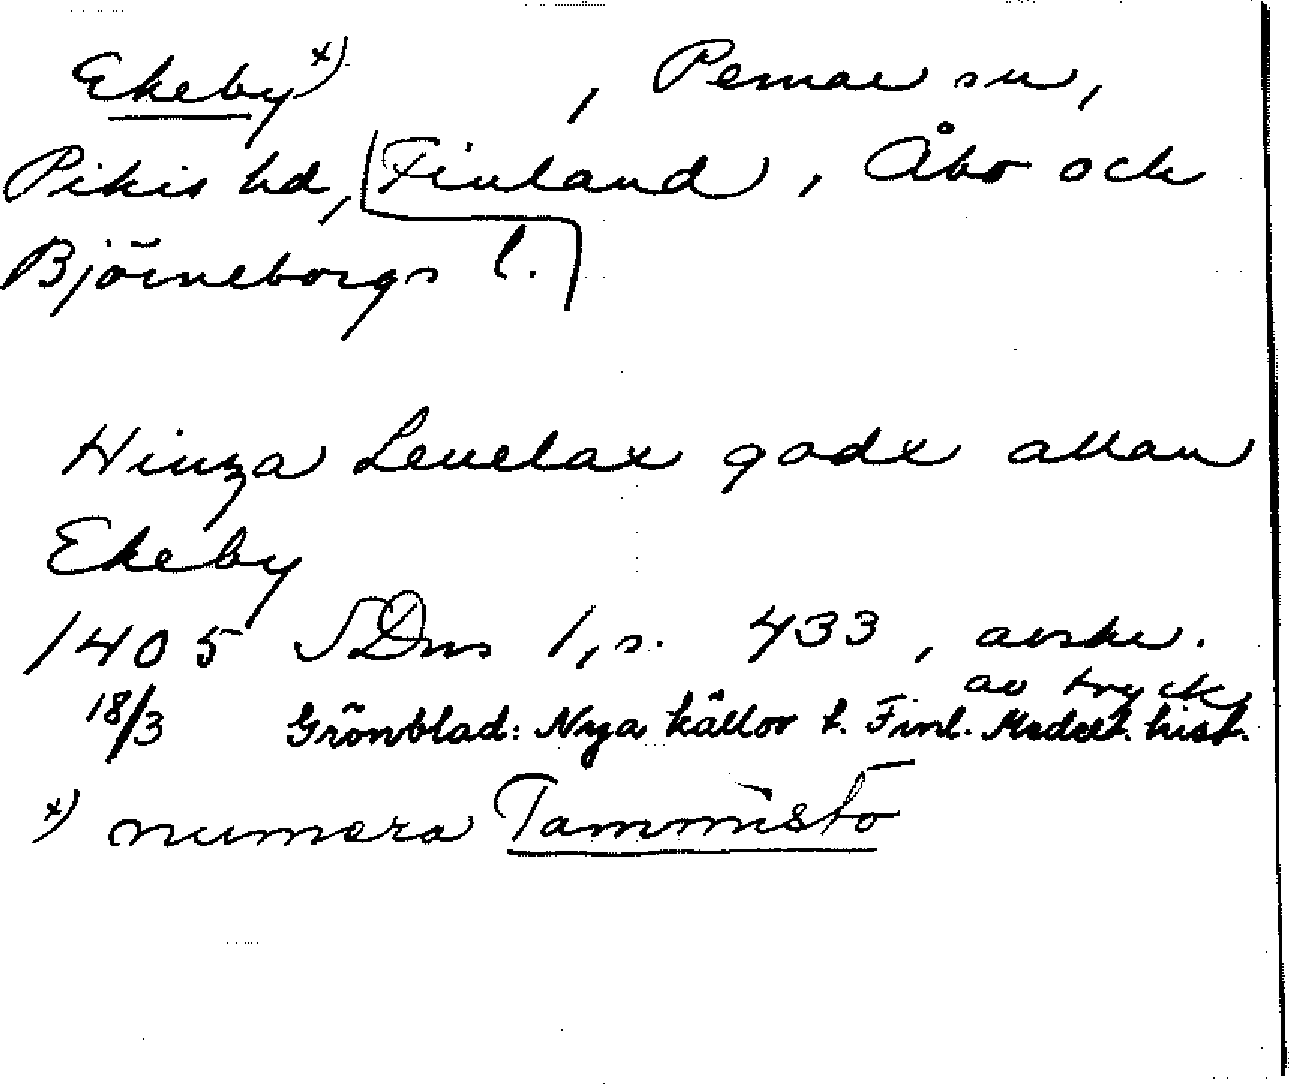 Ekeby x) , Pemar sn,
Pikis hd, Finland, Åbo och
Björneborgs l.
Hinza Levelax gode allan
Ekeby
1405 SDns 1, s. 433, avskr.
av tryck
18/3 Grönblad: Nya källor t. Finl. Medelt. hist.
x) numera Tammisto